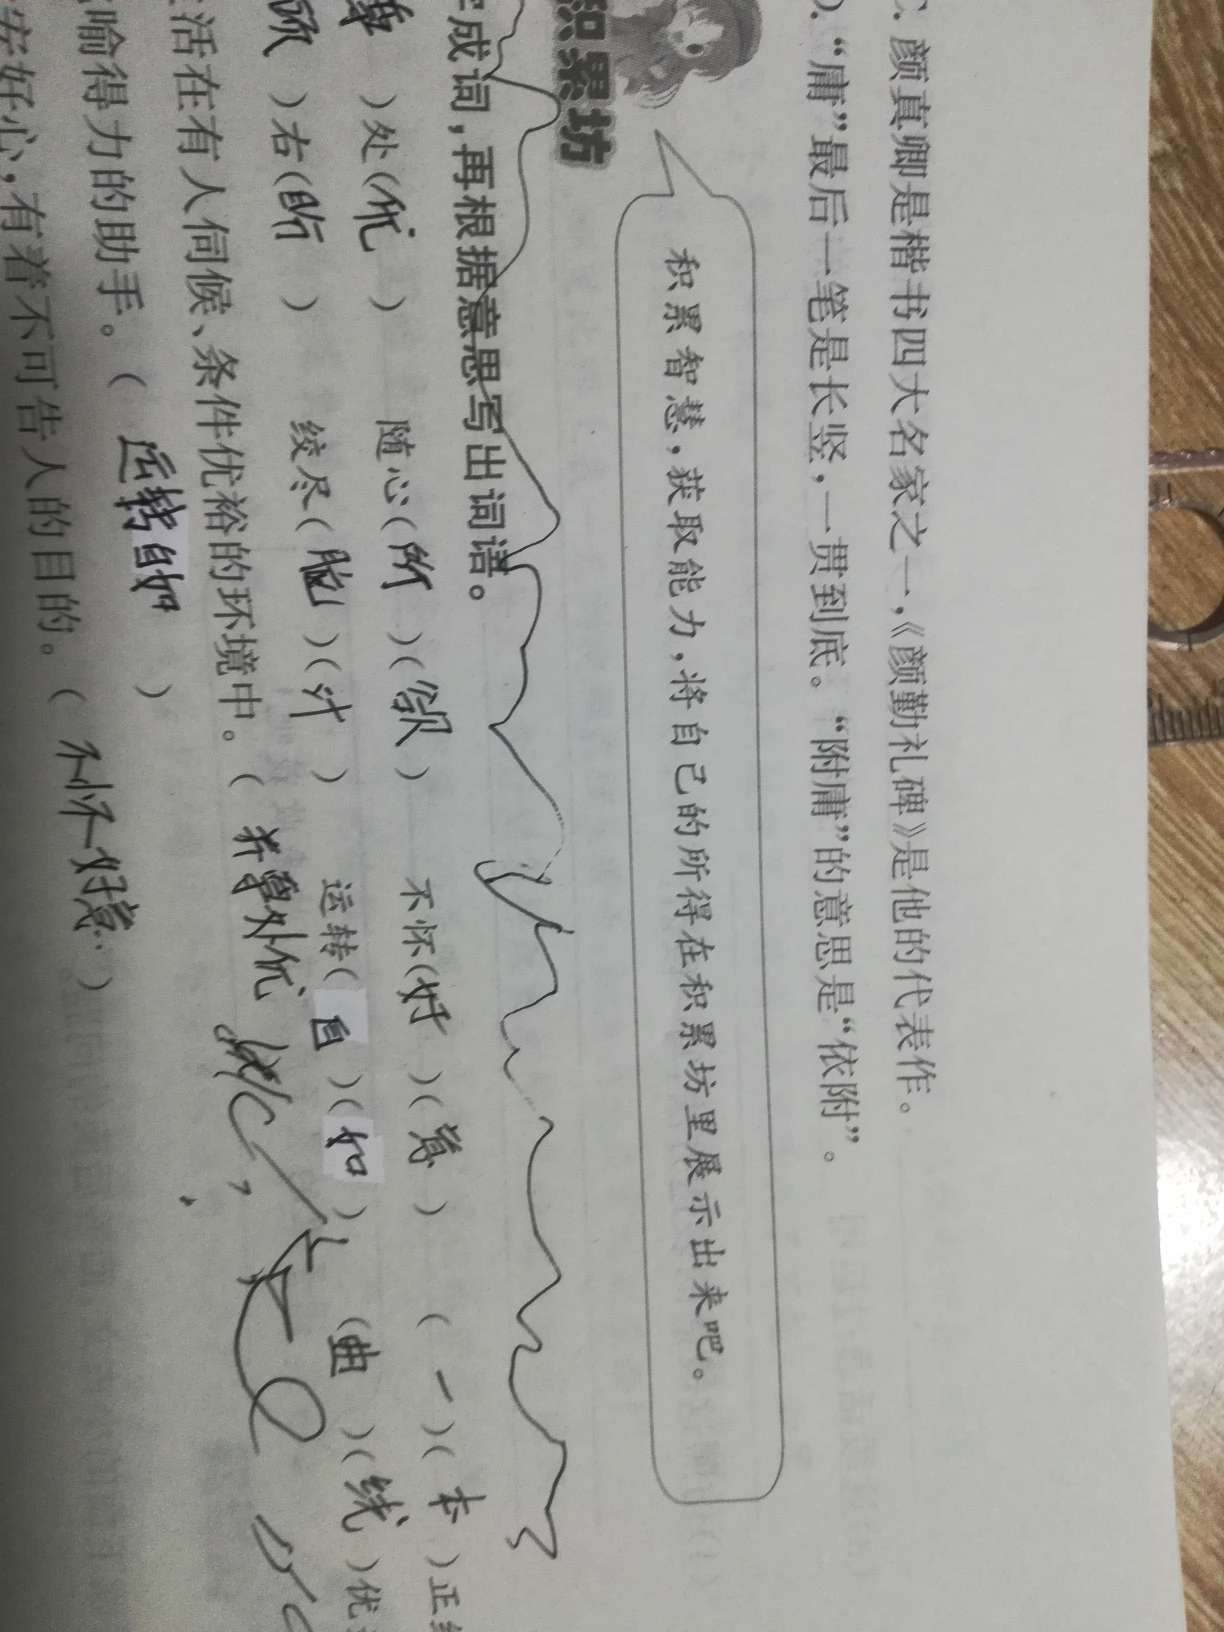 C. 颜真卿是楷书四大名家之一，《颜勤礼碑》是他的代表作。
D. “庸”最后一笔是长竖，一贯到底。“附庸”的意思是“依附”。
积累智慧，获取能力，将自己的所得在积累坊里展示出来吧。
积累坊
成词，再根据意思写出词语。
）处（优） 随心（所）（欲） 不怀（好）（意） （一）（本）正
顾）右（盼） 绞尽（脑）（汁） 运转（自）（如） （曲）（线）优
活在有人伺候、条件优裕的环境中。（养尊处优
喻得力的助手。（运转自如）
安好心，有着不可告人的目的。（不怀好意）